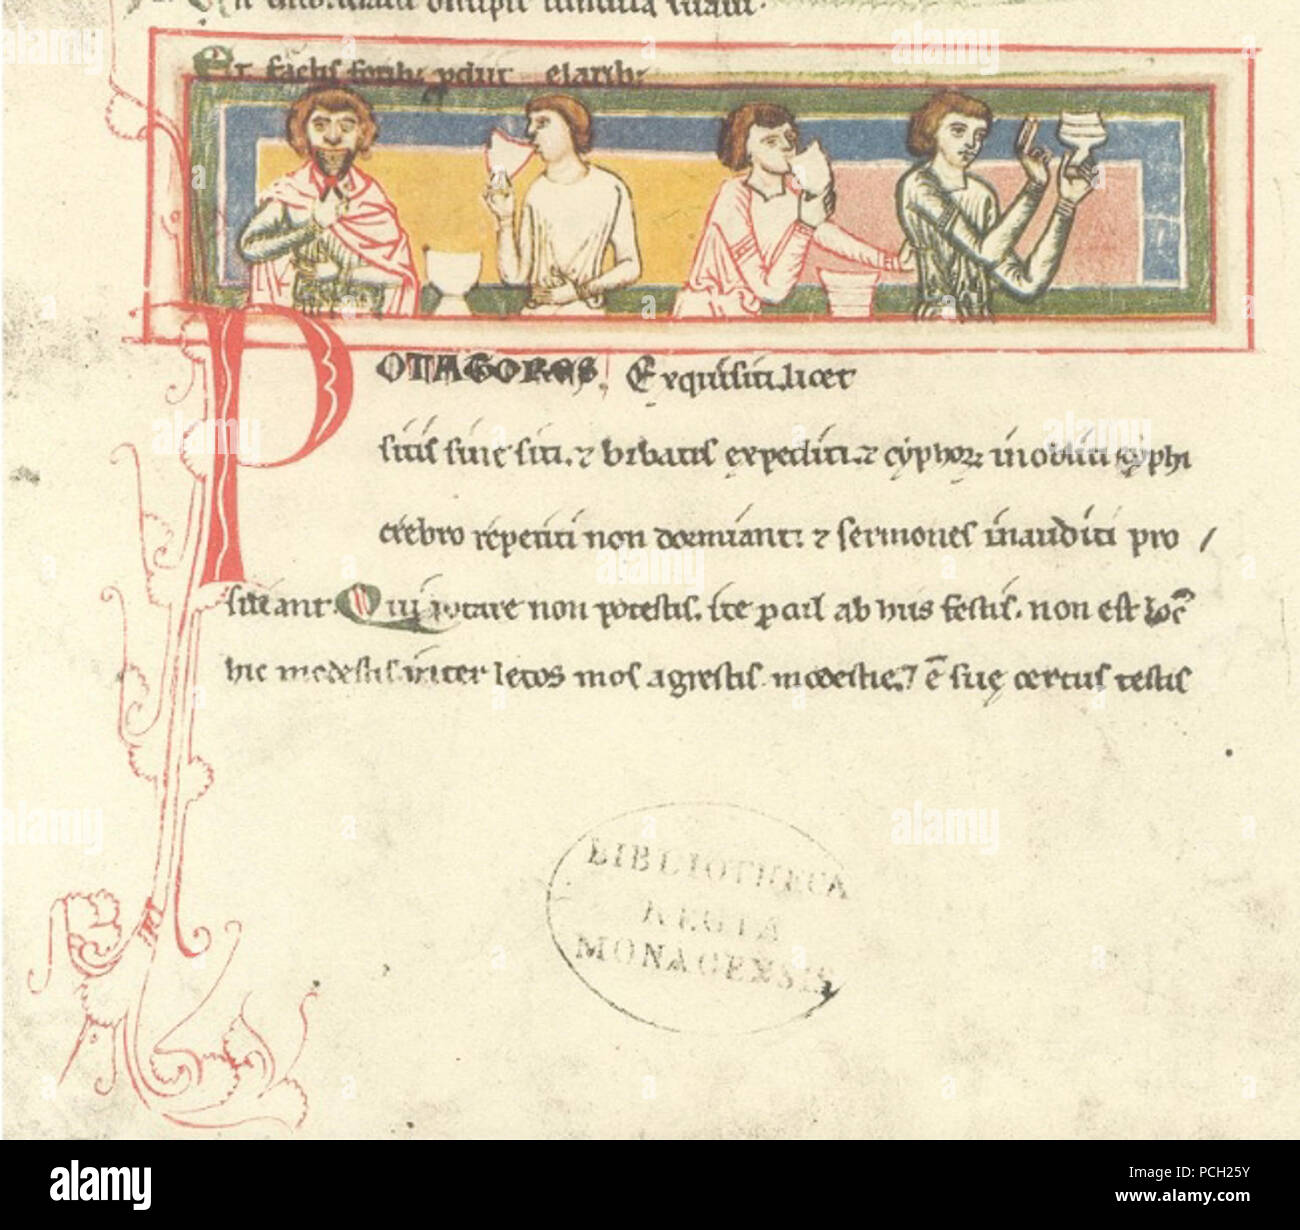 Et factis foribus perdunt elaribus
POTATORES Exquisiti. licet
sitis sine siti. ⁊ bibatis expediti. ⁊ cyphorum inobliti cyphi
crebro repetiti non dormiant: ⁊ sermones inauditi pro
siliant. Qui potare non potestis. ite procul ab his festis. non est locus
hic modestis. inter letos mos agrestis modestie. ⁊ est sue certus testis
BIBLIOTHECA
REGIA
MONACENSIS
alamy
Image ID: PCH25Y
www.alamy.com